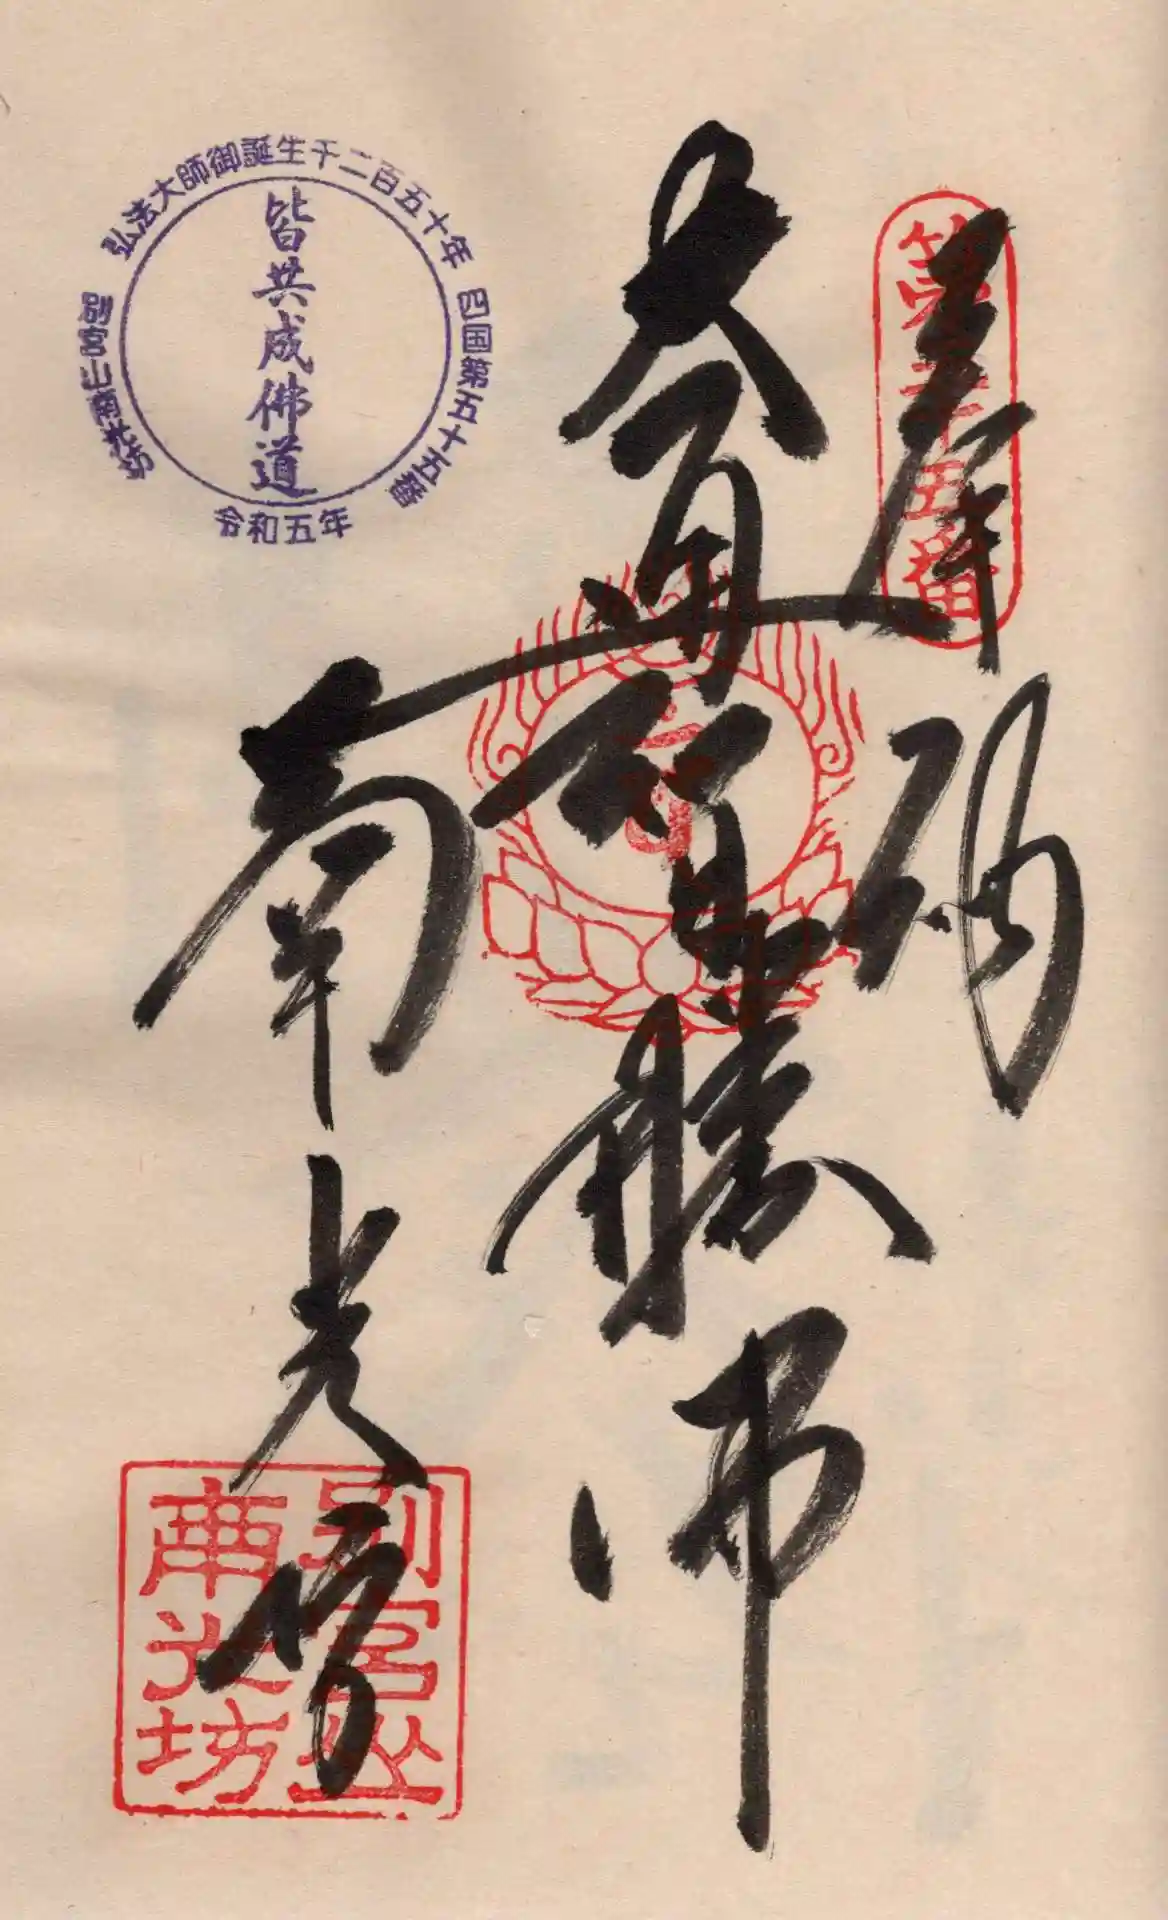 奉納
第五十五番
大通智勝佛
南光坊
弘法大師御誕生千二百五十年
四国第五十五番
別宮山南光坊
皆共成佛道
令和五年
別宮山
南光坊